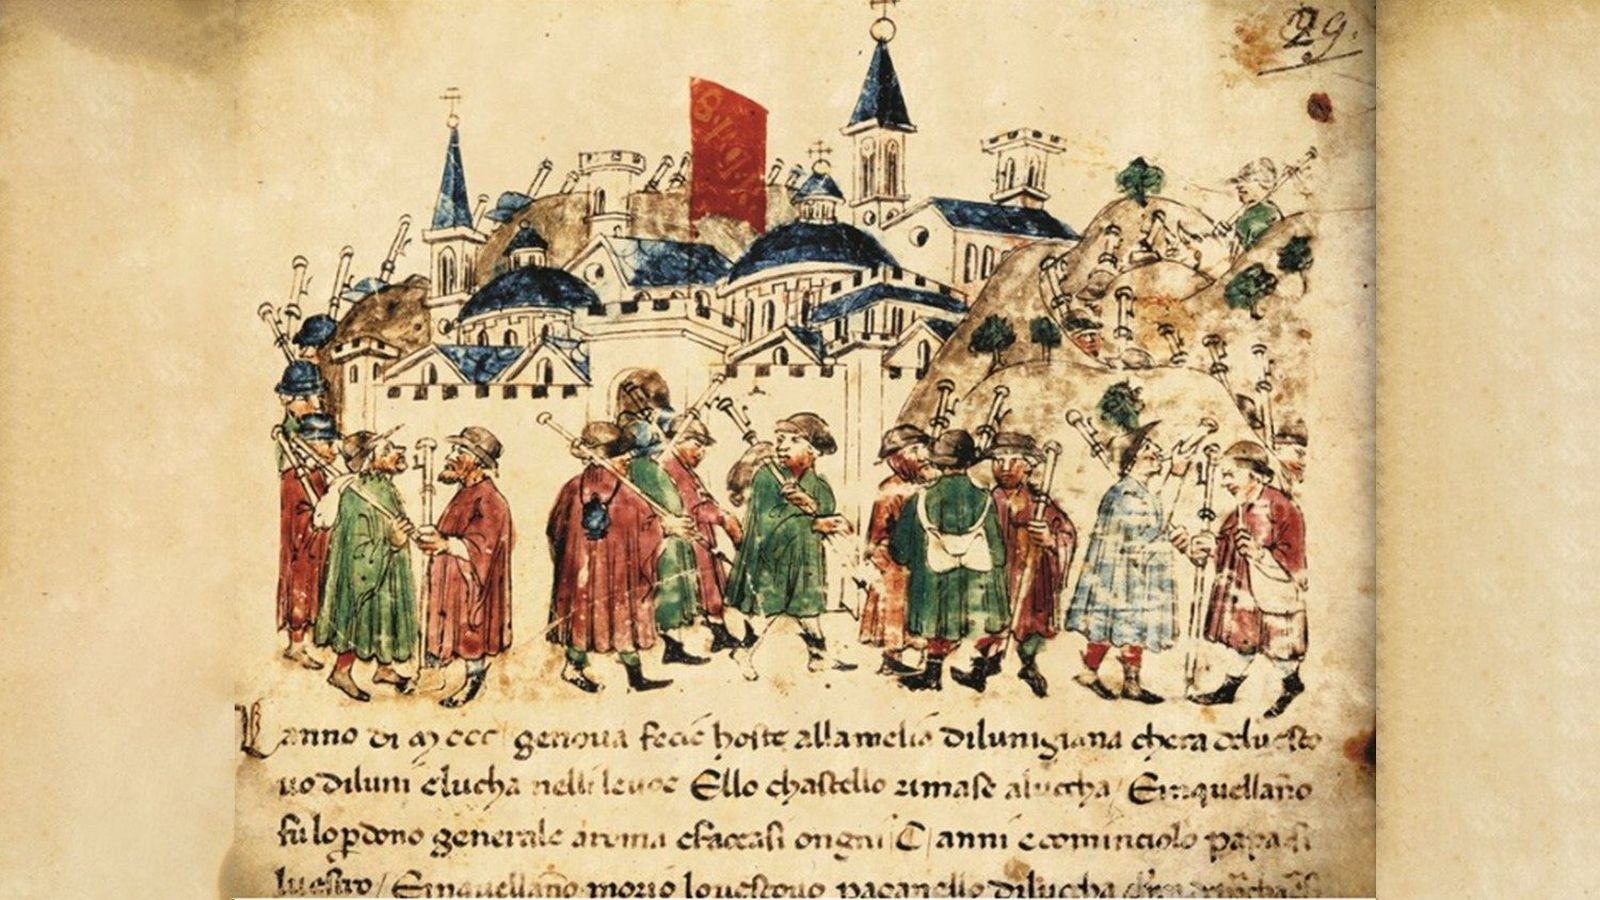 29.
Lanno di MCCC genoua fecie hoste allamelia dilunigiana chera deluesco
uo diluni elucha nelli leuoe Ello chastello rimase aluccha / Einquellano
fu lo pdono generale aroma efaccasi ongni C anni ecominciolo papa si
luestro / Einquellano morio louescouo paganello diluccha